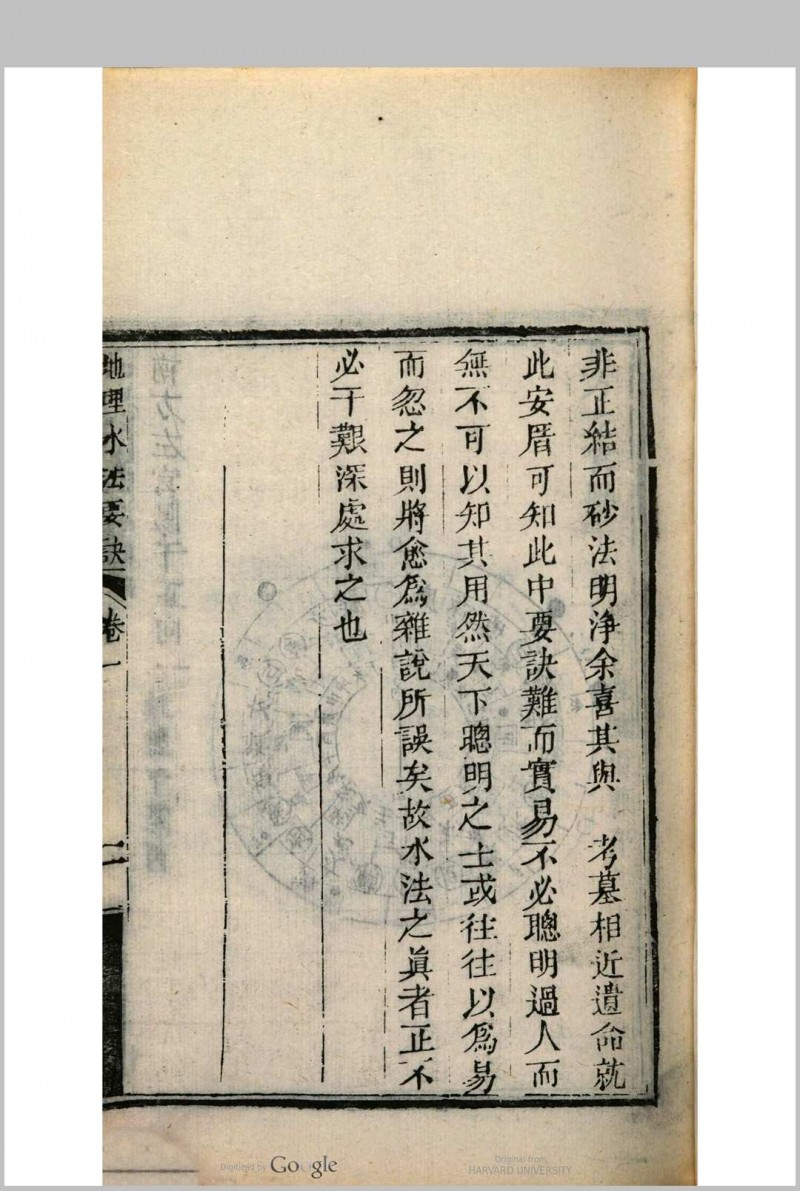 非正結而砂法明淨余喜其與　考墓相近遺命就
此安厝可知此中要訣難而實易不必聰明過人而
無不可以知其用然天下聰明之士或往往以爲易
而忽之則將愈爲雜說所誤矣故水法之眞者正不
必干艱深處求之也
地理水法要訣　卷一　二
Digitized by Google
Original from
HARVARD UNIVERSITY